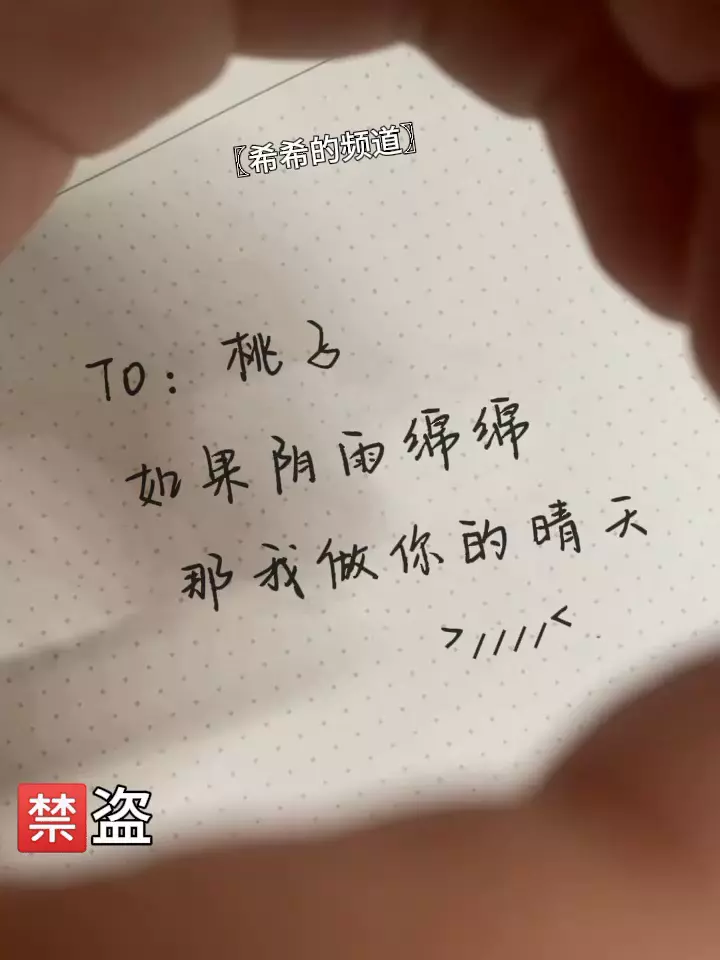 〖希希的频道〗
TO: 桃子
如果阴雨绵绵
那我做你的晴天
>/////<
禁盗